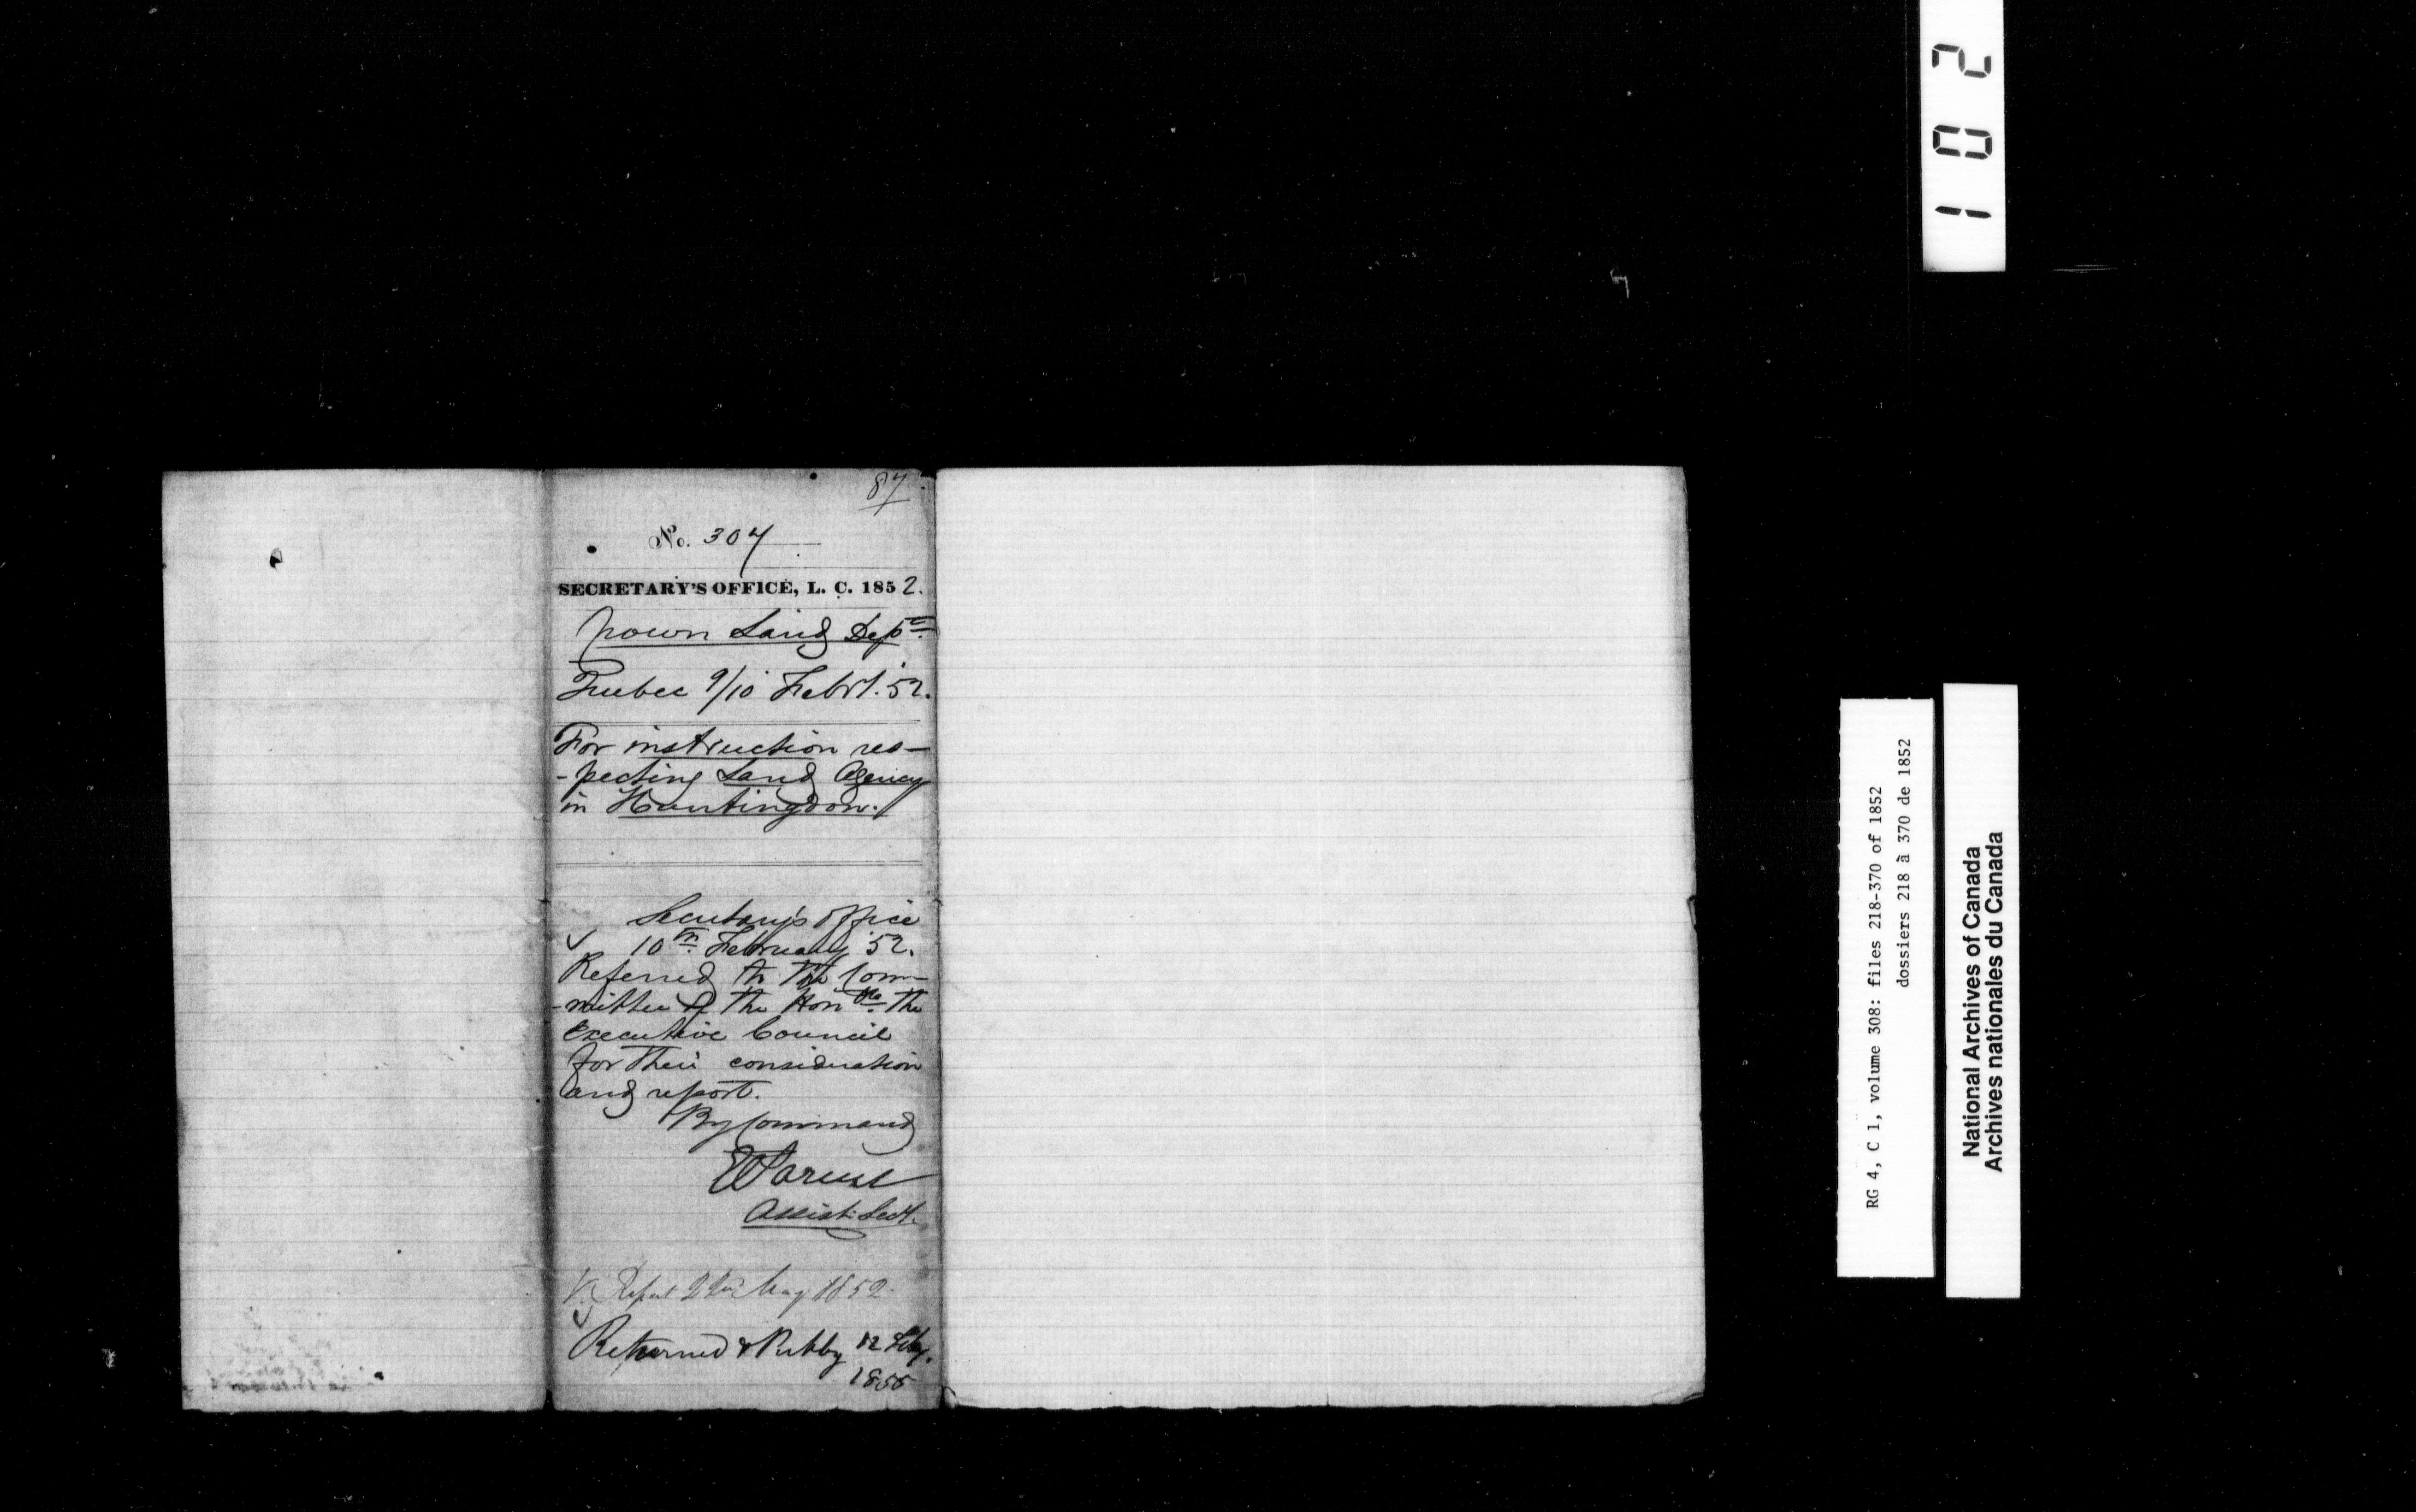 87
No. 307
SECRETARY'S OFFICE, L. C. 1852.
Crown Land Dept.
Quebec 9/10 Febry. 52.
For instruction res-
-pecting Land Agency
in Huntingdon.
Secretary's Office
10th February 52.
Referred to the Com-
-mittee of the Honble. the
Executive Council
for their consideration
and report.
By Command
E Parent
Assist: Secy.
V. Report 22nd May 1852.
Returned 12 Feby.
1855
102
RG 4, C 1, volume 308: files 218-370 of 1852
dossiers 218 à 370 de 1852
National Archives of Canada
Archives nationales du Canada